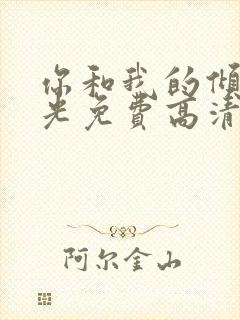 你和我的倾
光免费高清
阿尔金山